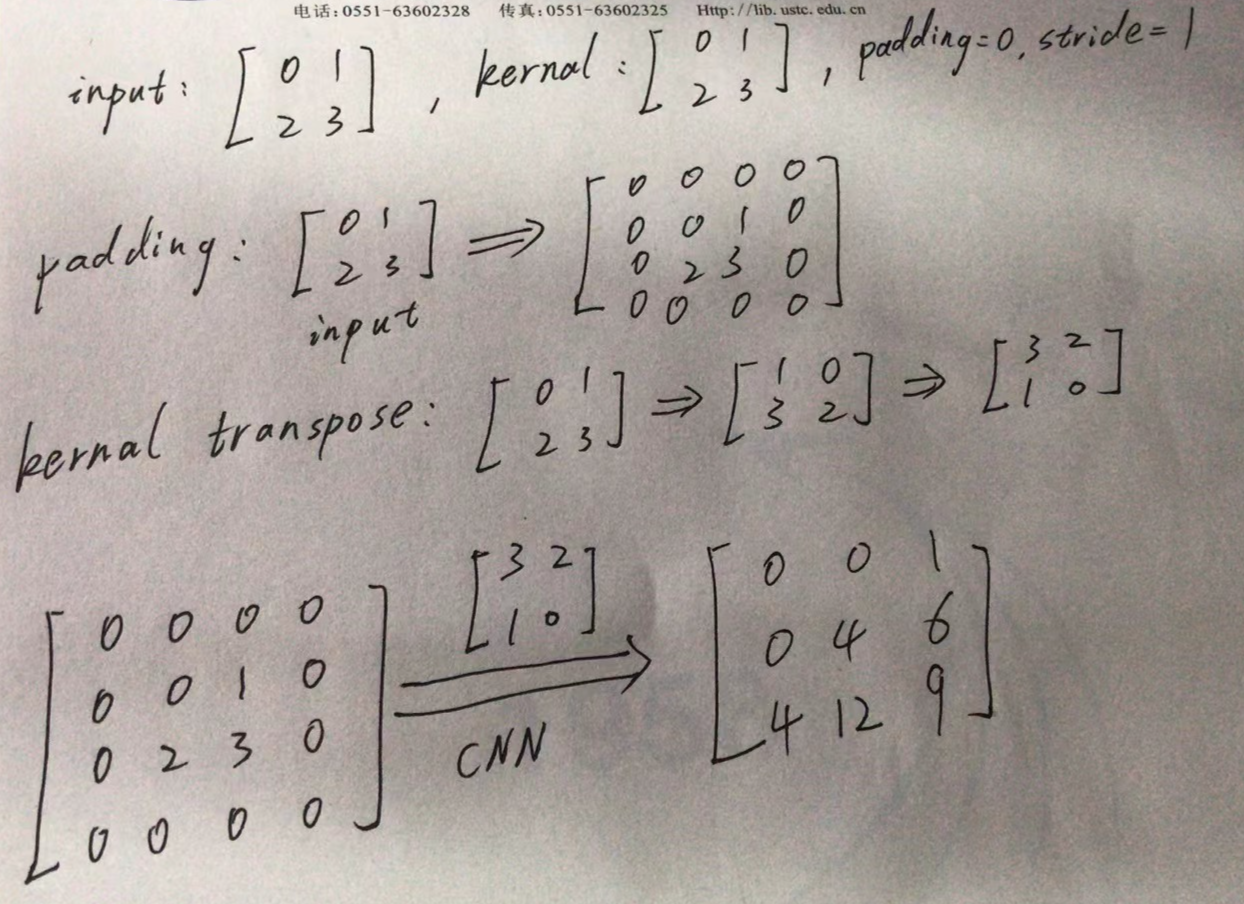 电话:0551-63602328 传真:0551-63602325 Http://lib.ustc.edu.cn
input: [0 1
2 3], kernal: [0 1
2 3], padding=0, stride=1
padding: [0 1
2 3] ⇒ [0 0 0 0
0 0 1 0
0 2 3 0
0 0 0 0]
input
kernal transpose: [0 1
2 3] ⇒ [1 0
3 2] ⇒ [3 2
1 0]
[0 0 0 0
0 0 1 0
0 2 3 0
0 0 0 0]
[3 2
1 0]
⇒
CNN
[0 0 1
0 4 6
4 12 9]